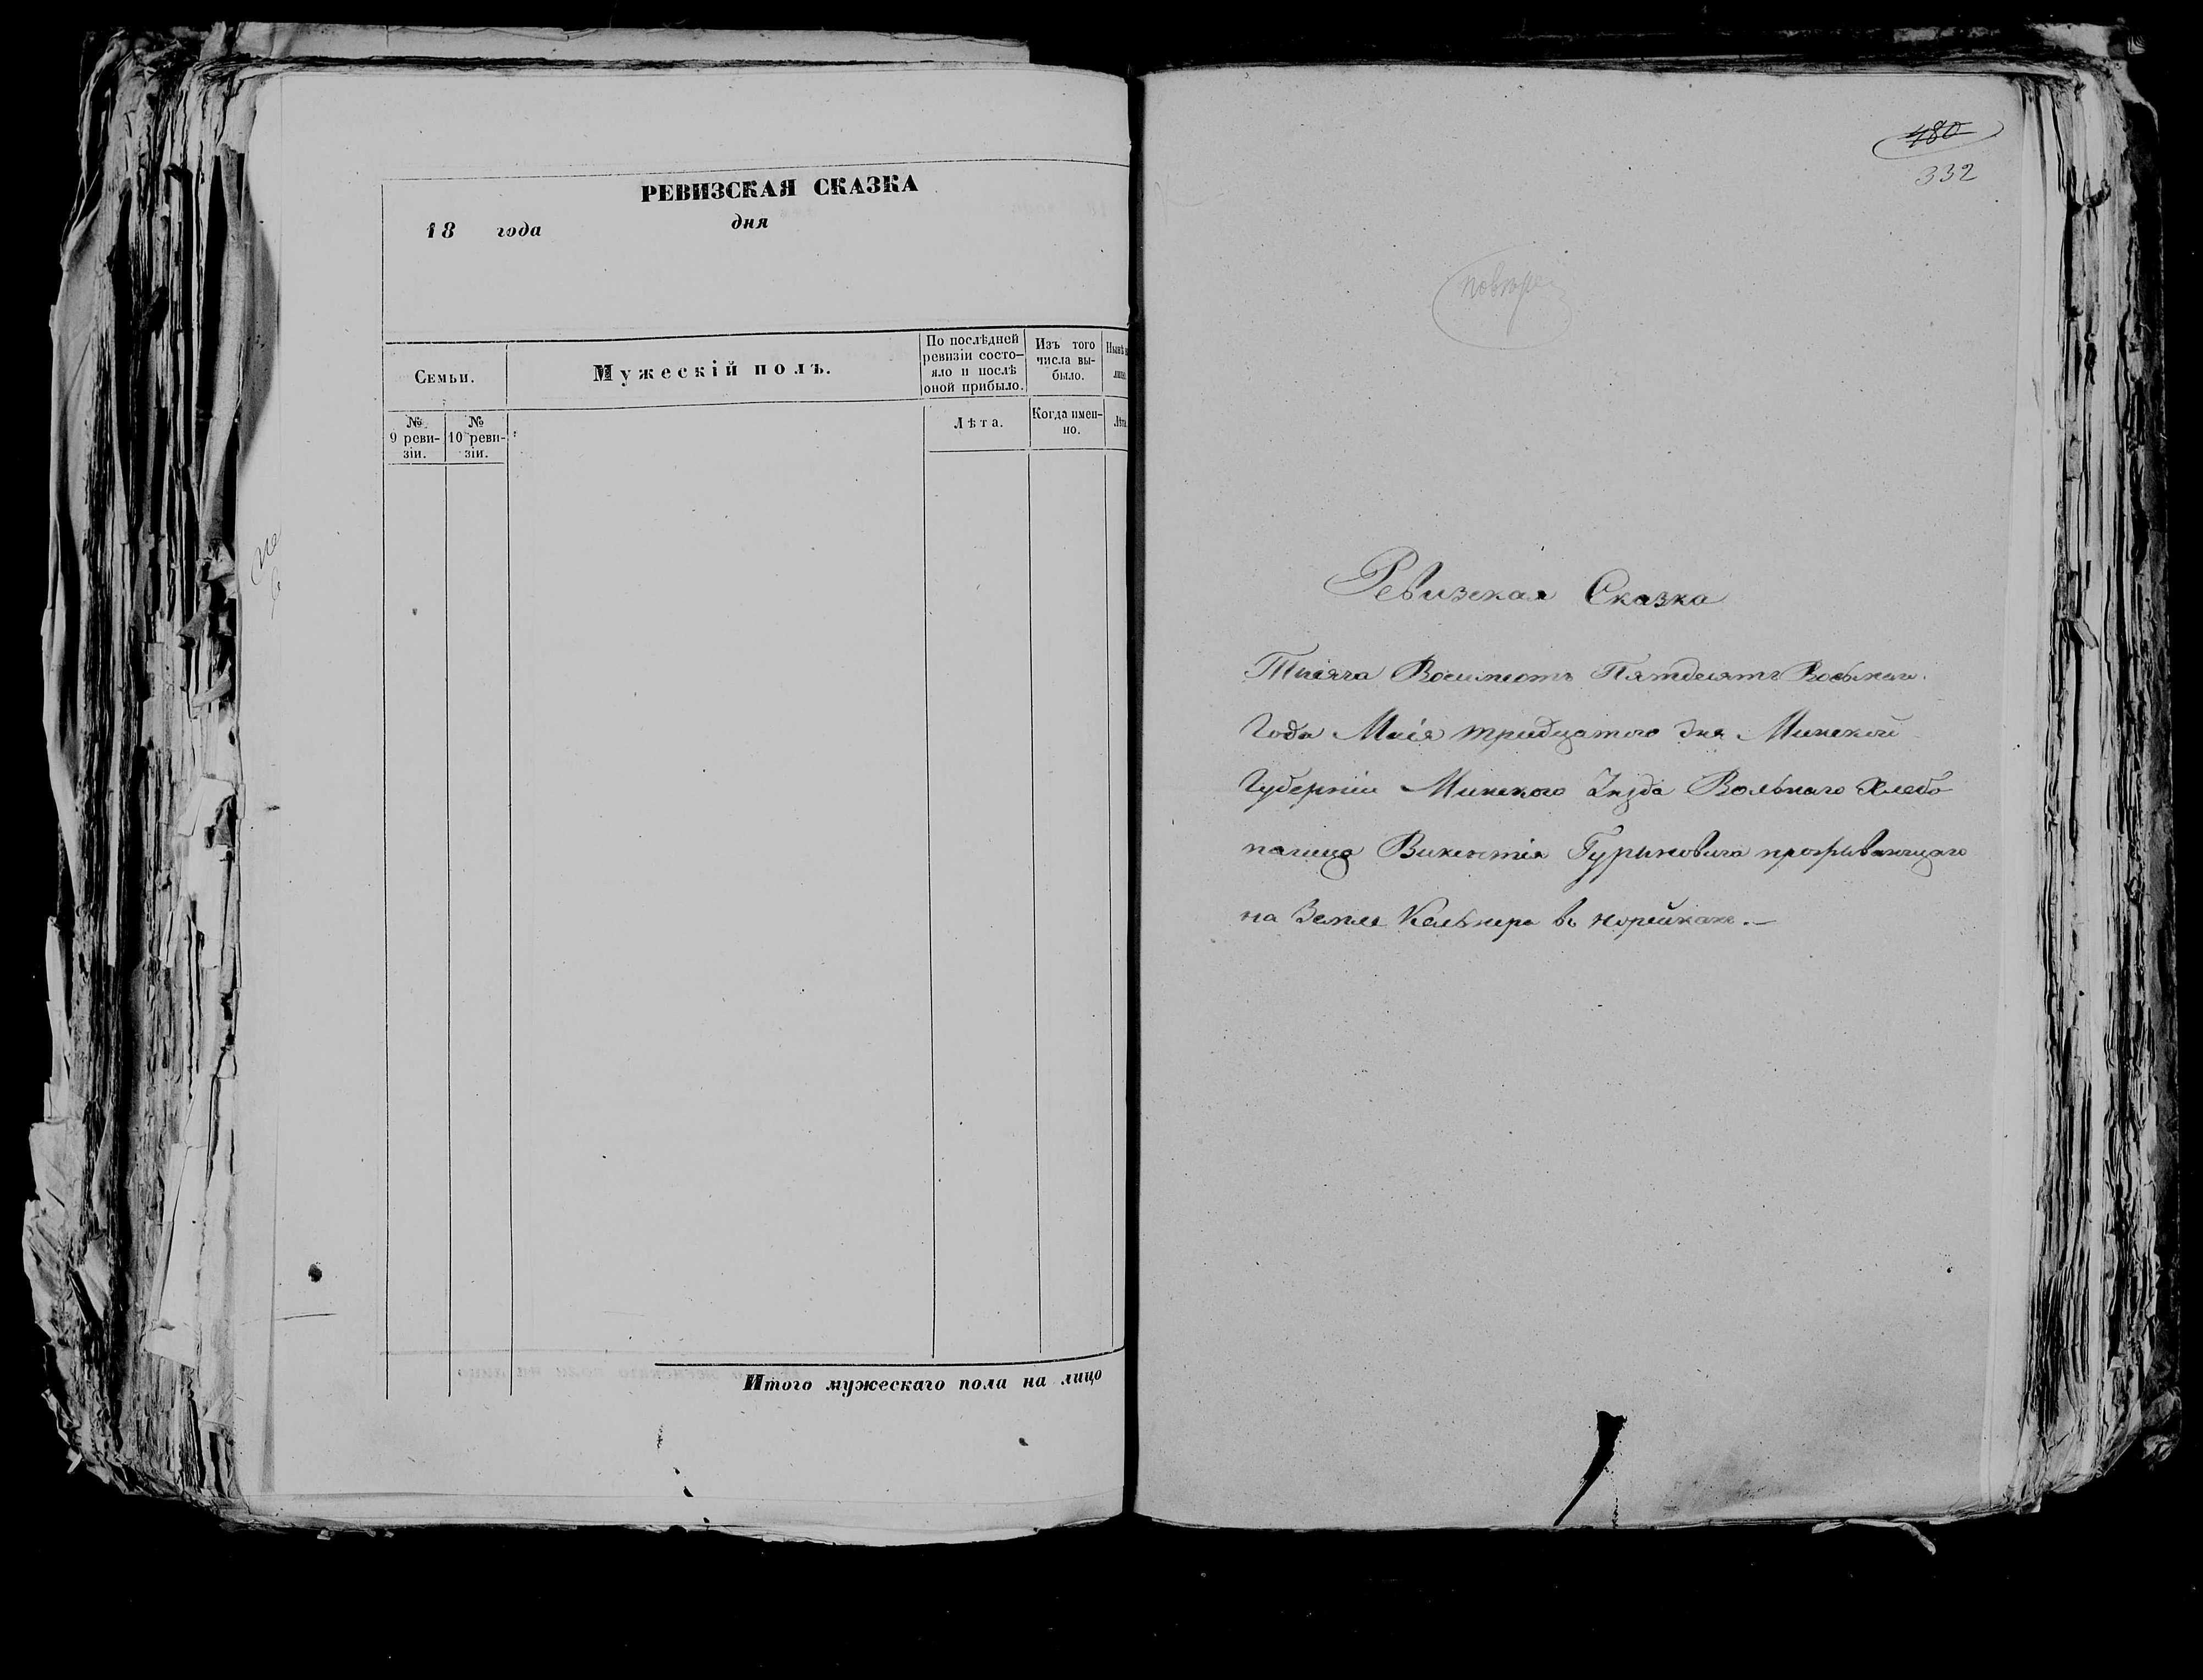 РЕВИЗСКАЯ СКАЗКА
18 года дня
Семьи.
Мужескій полъ.
По послѣдней ревизіи состо-
яло и послѣ
оной прибыло.
Изъ того
числа вы-
было.
№
9 реви-
зіи.
№
10 реви-
зіи.
Лѣта.
Когда имен-
но.
Итого мужескаго пола на лицо
480
332
Ревизская Сказка
Тысяча Восимсотъ Пятдесятъ Восьмаго
Года Маія тридцатого дня Минской
Губерніи Минского Уѣзда Вольнаго Хлебо
пашца Викентія Гурыновича проживающаго
на Земле Кельнера въ